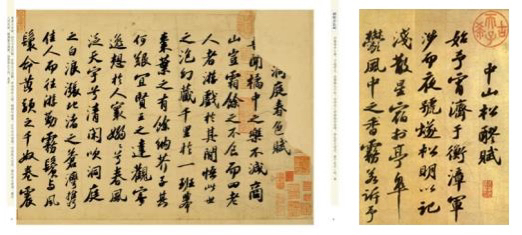 洞庭春色賦
吾聞橘中之樂不減商
山豈霜餘之不食而四老
人者游戲於其間悟此世
之泡幻藏千里於一班舉
棗葉之有餘納芥子其
何艱宜賢王之達觀寄
逸想於人寰嫋嫋兮春風
泛天宇兮清閑吹洞庭
之白浪漲北渚之蒼灣攜
佳人而往游勤霧鬢與風
鬟命黃頭之千奴卷震
中山松醪賦
始予宵濟于衡漳軍
涉而夜號燧松明以記
淺散星宿於亭皋
鬱風中之香霧若訴予